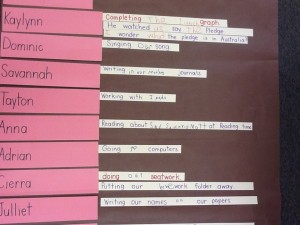 Kaylynn
Completing the graph
He us say the Pledge
I wonder the pledge is in Australia
Dominic
Singing Our song
Savannah
Writing in our journals
Tayton
Working with
Anna
Reading about at Reading time
Adrian
Going to computers
Cierra
doing our seatwork.
Putting our folder away
Julliet
Writing our names on our papers